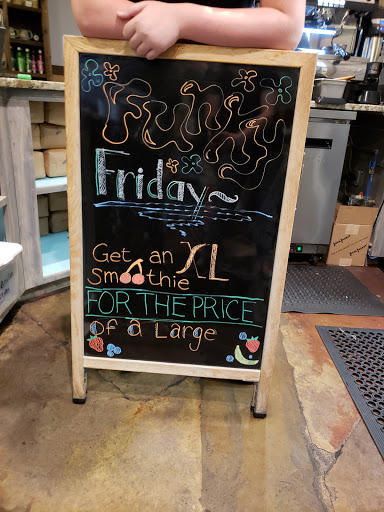 Funky
Friday~
Get an XL
Smoothie
FOR THE PRICE
of a Large